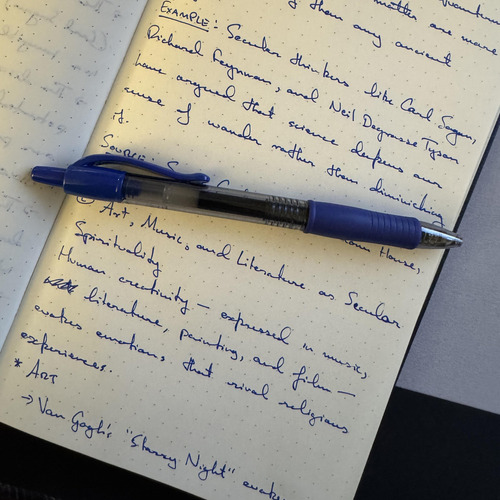 matter are more
than any ancient
EXAMPLE: Secular thinkers like Carl Sagan,
Richard Feynman, and Neil Degrasse Tyson
have argued that science deepens our
sense of wonder rather than diminishing
it.
SOURCE:
House,
Art, Music, and Literature as Secular
Spirituality
Human creativity — expressed in music,
literature, painting, and film —
evokes emotions that rival religious
experiences.
* ART
→ Van Gogh's "Starry Night"